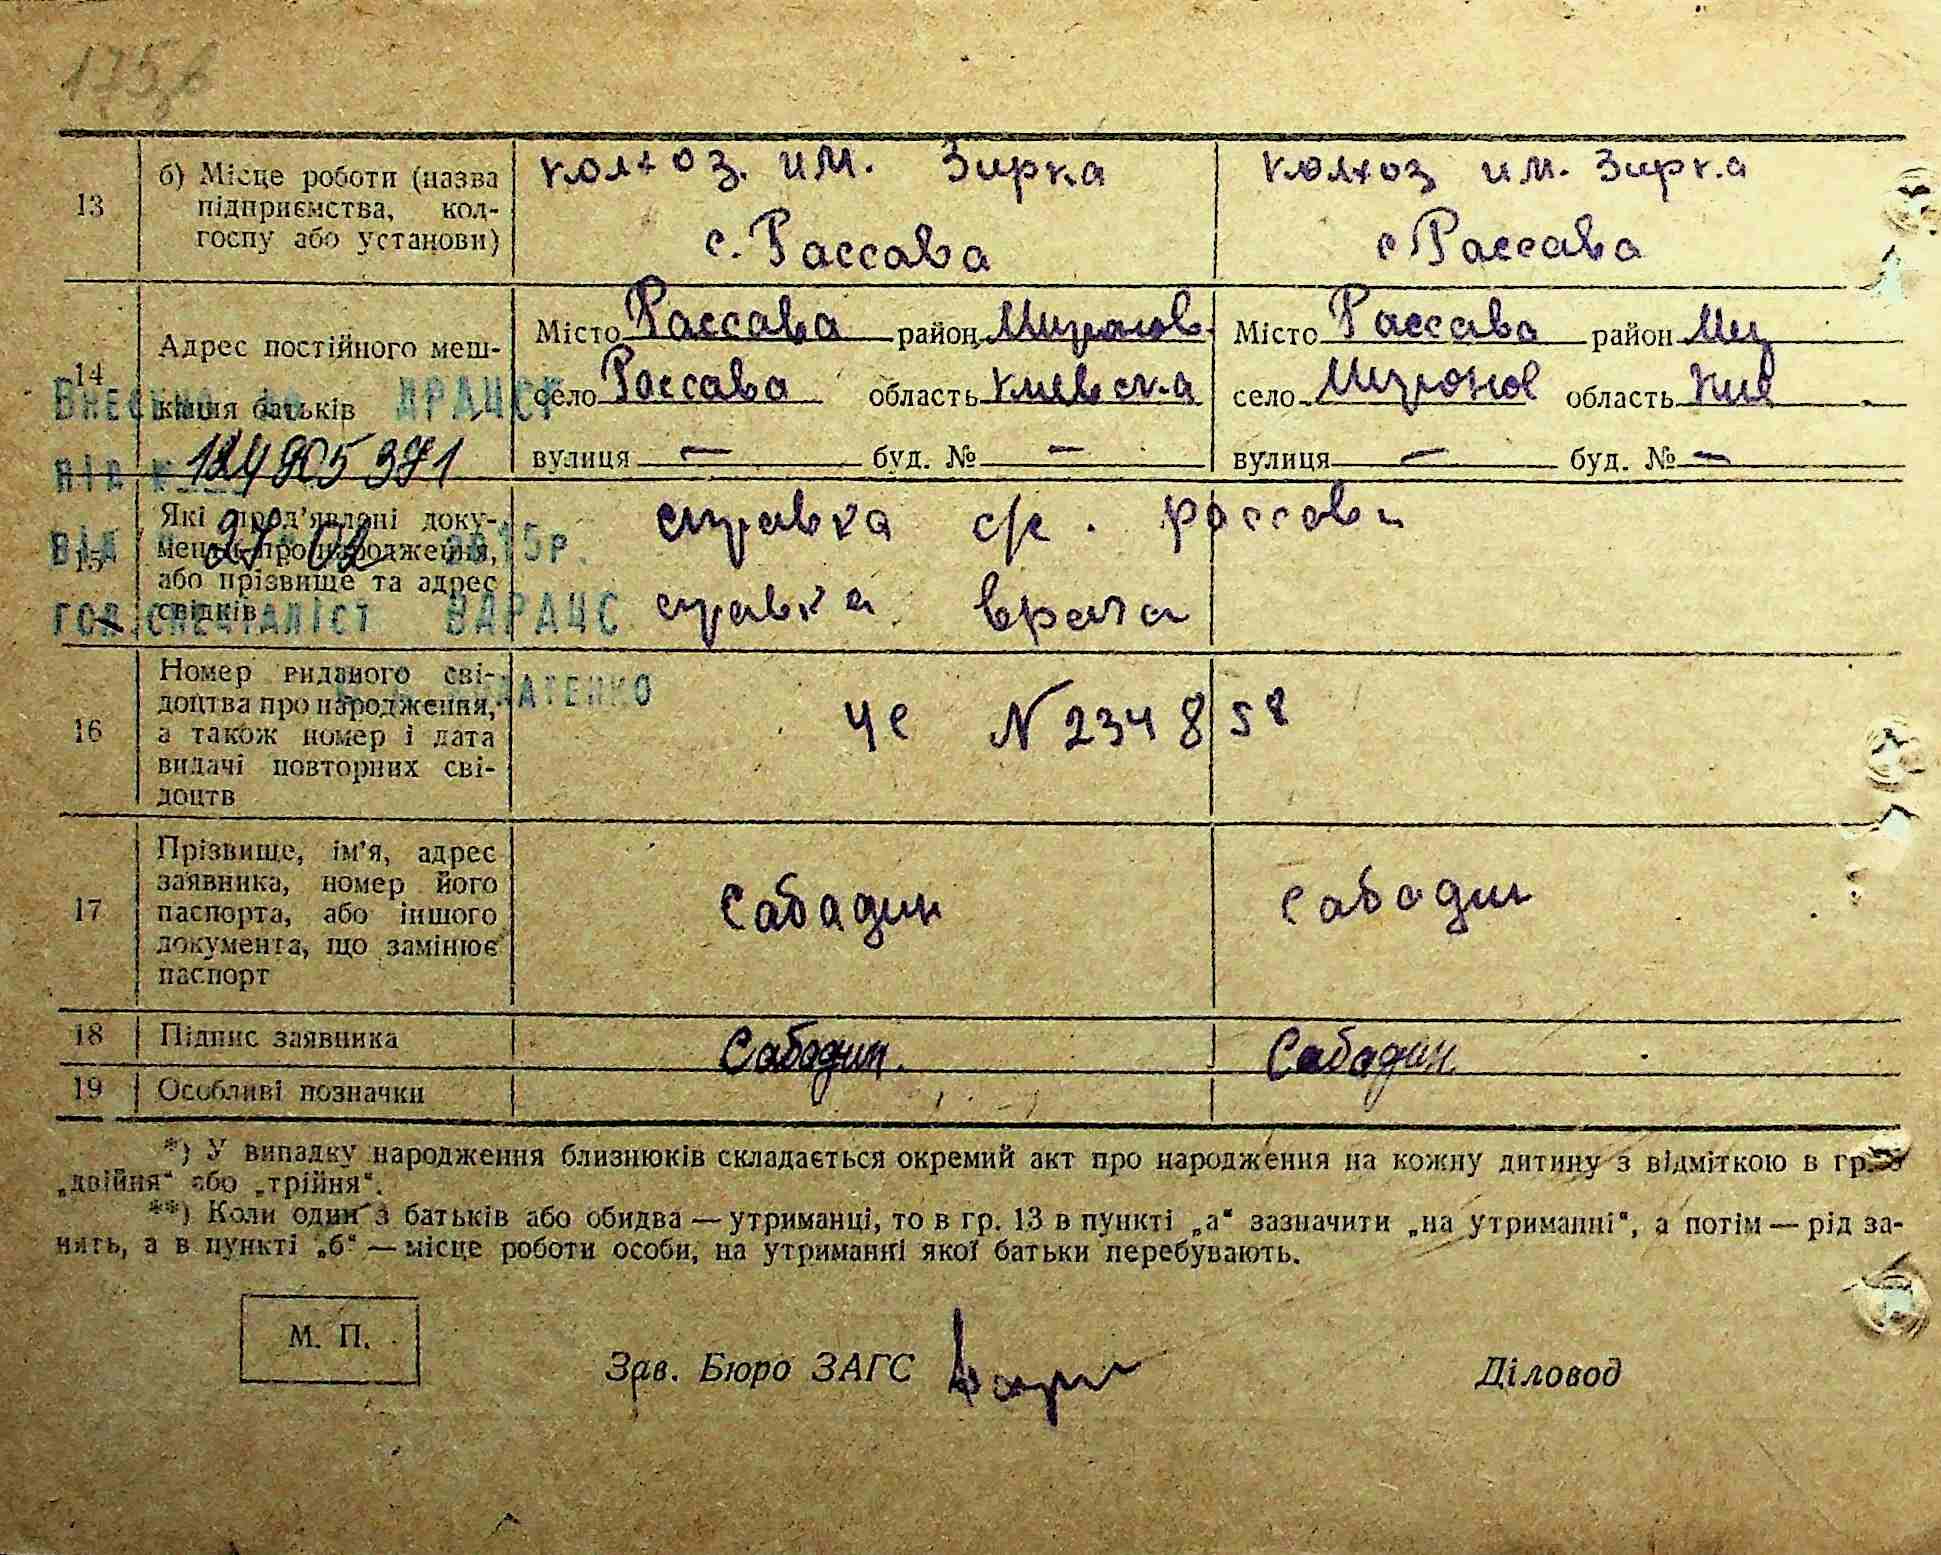 175в
13 б) Місце роботи (назва підприємства, кол-госпу або установи)
колхоз. им. Зирка
с. Рассава
колхоз им. Зирка
с Рассава
14 Адрес постійного меш-кання батьків
Місто Рассава район Миронов.
село Рассава область Киевска
вулиця — буд. № —
Місто Рассава район
село Миронов область Кив
вулиця — буд. № —
ВНЕСЕНО ДО ДРАЦСГ
ВІД 27 02 2015р.
ГОЛ.СПЕЦІАЛІСТ ВДРАЦС
15 Які пред'явлені доку-менти про народження, або прізвище та адрес свідків
справка с/с. Рассави
справка врача
16 Номер виданого сві-доцтва про народження, а також номер і дата видачі повторних сві-доцтв
ЧС N 234858
17 Прізвище, ім'я, адрес заявника, номер його паспорта, або іншого документа, що замінює паспорт
Сабадин
Сабадин
18 Підпис заявника
Сабадин.
Сабадин.
19 Особливі позначки
*) У випадку народження близнюків складається окремий акт про народження на кожну дитину з відміткою в гр.
„двійня“ або „трійня“.
**) Коли один з батьків або обидва — утриманці, то в гр. 13 в пункті „а“ зазначити „на утриманні“, а потім — рід за-
нять, а в пункті „б“ — місце роботи особи, на утриманні якої батьки перебувають.
М. П.
Зав. Бюро ЗАГС
Діловод